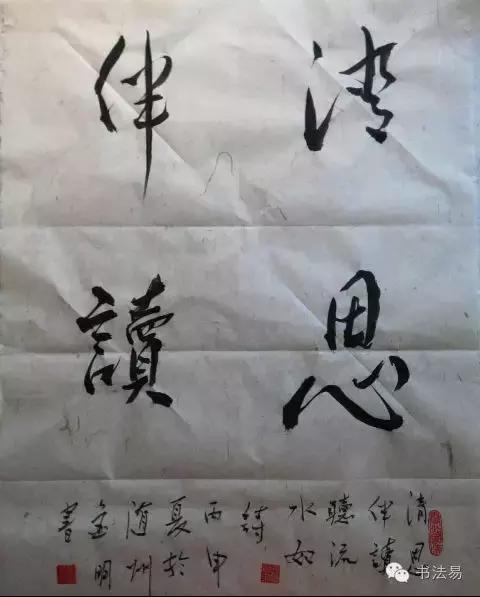 清恩
伴讀
清恩
伴讀
聽流
水如
詩
丙申
夏於
随州
金明
書
书法易